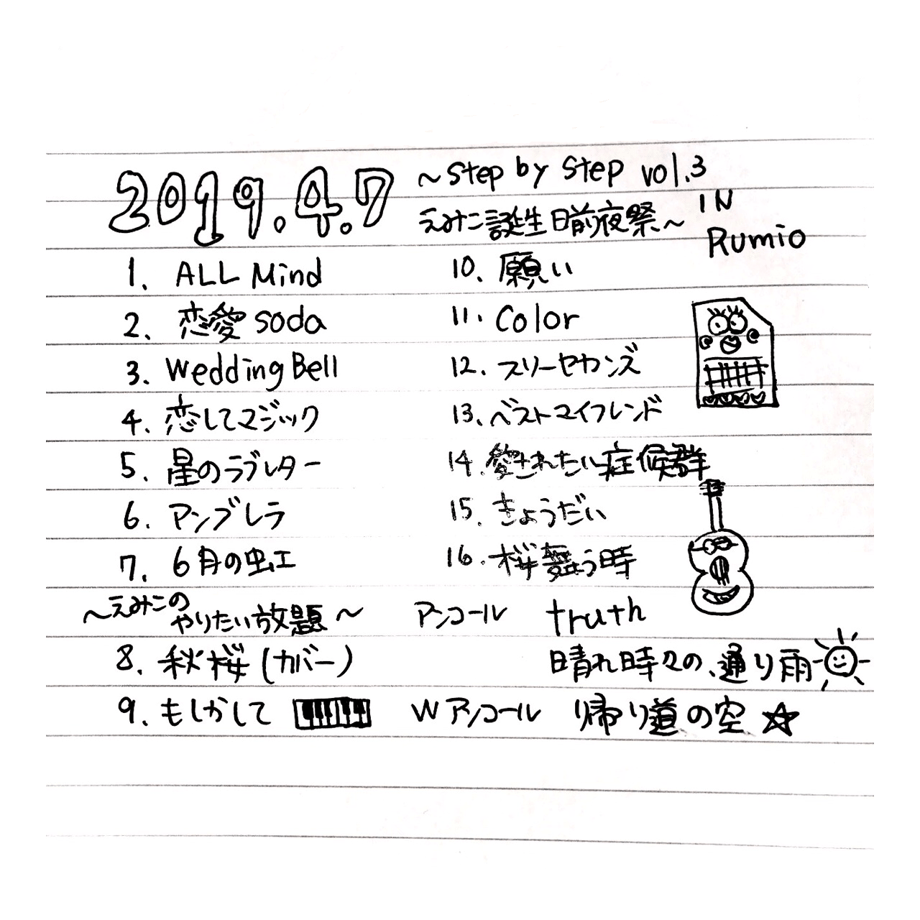 2019.4.7
～step by step vol.3
えみこ誕生日前夜祭～
IN
Rumio
1. ALL Mind
2. 恋愛soda
3. Wedding Bell
4. 恋してマジック
5. 星のラブレター
6. アンブレラ
7. 6月の虹
～えみこの
やりたい放題～
8. 秋桜(カバー)
9. もしかして
10. 願い
11. Color
12. スリーセカンズ
13. ベストマイフレンド
14. 愛されたい症候群
15. きょうだい
16. 桜舞う時
アンコール truth
晴れ時々の、通り雨
Wアンコール 帰り道の空